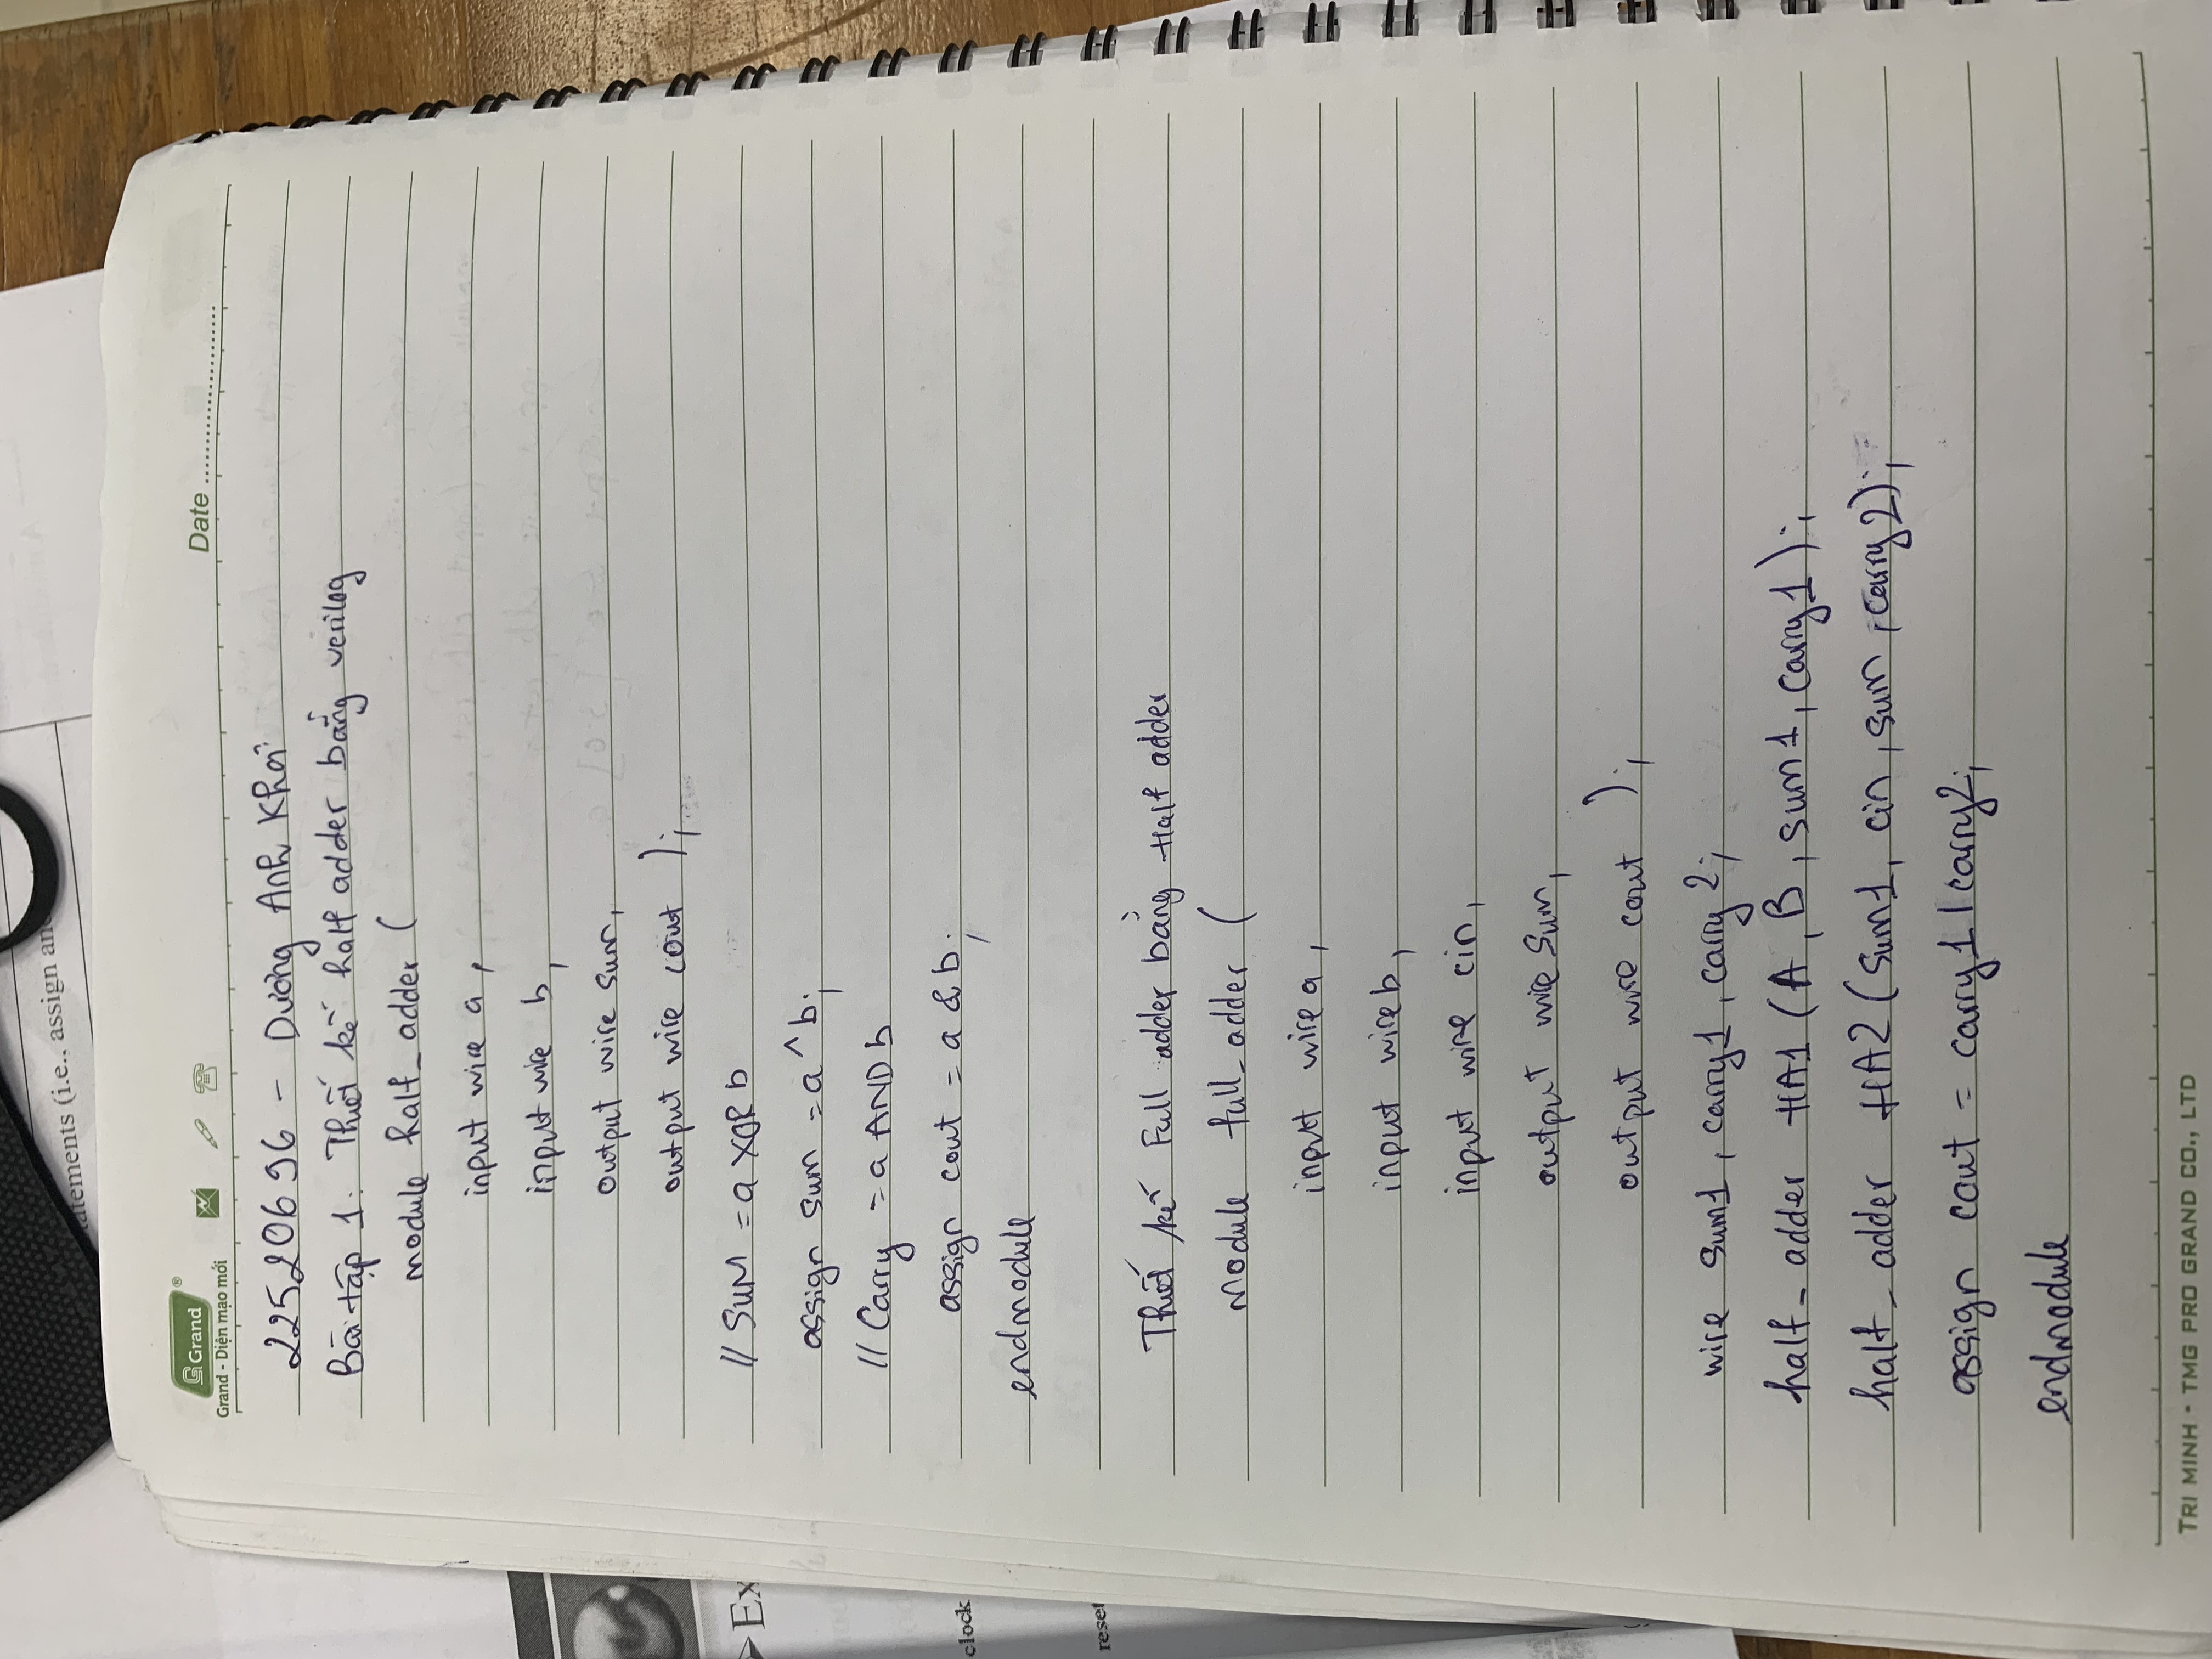 atements (i.e., assign and
Grand
Grand - Diện mạo mới
Date
22520696 - Dương Anh Khôi
Bài tập 1: Thiết kế half adder bằng verilog
module half_adder (
input wire a,
input wire b,
output wire sum,
output wire cout );
// SUM = a XOR b
assign sum = a ^ b;
// Carry = a AND b
assign cout = a & b;
endmodule
Thiết kế Full adder bằng Half adder
Module full_adder (
input wire a,
input wire b,
input wire cin,
output wire sum,
output wire cout );
wire sum1, carry1, carry2;
half_adder HA1 (A, B, sum1, carry1);
half_adder HA2 (sum1, cin, sum, carry2);
assign cout = carry1 | carry2;
endmodule
TRI MINH - TMG PRO GRAND CO., LTD
➢Ex
clock
reset